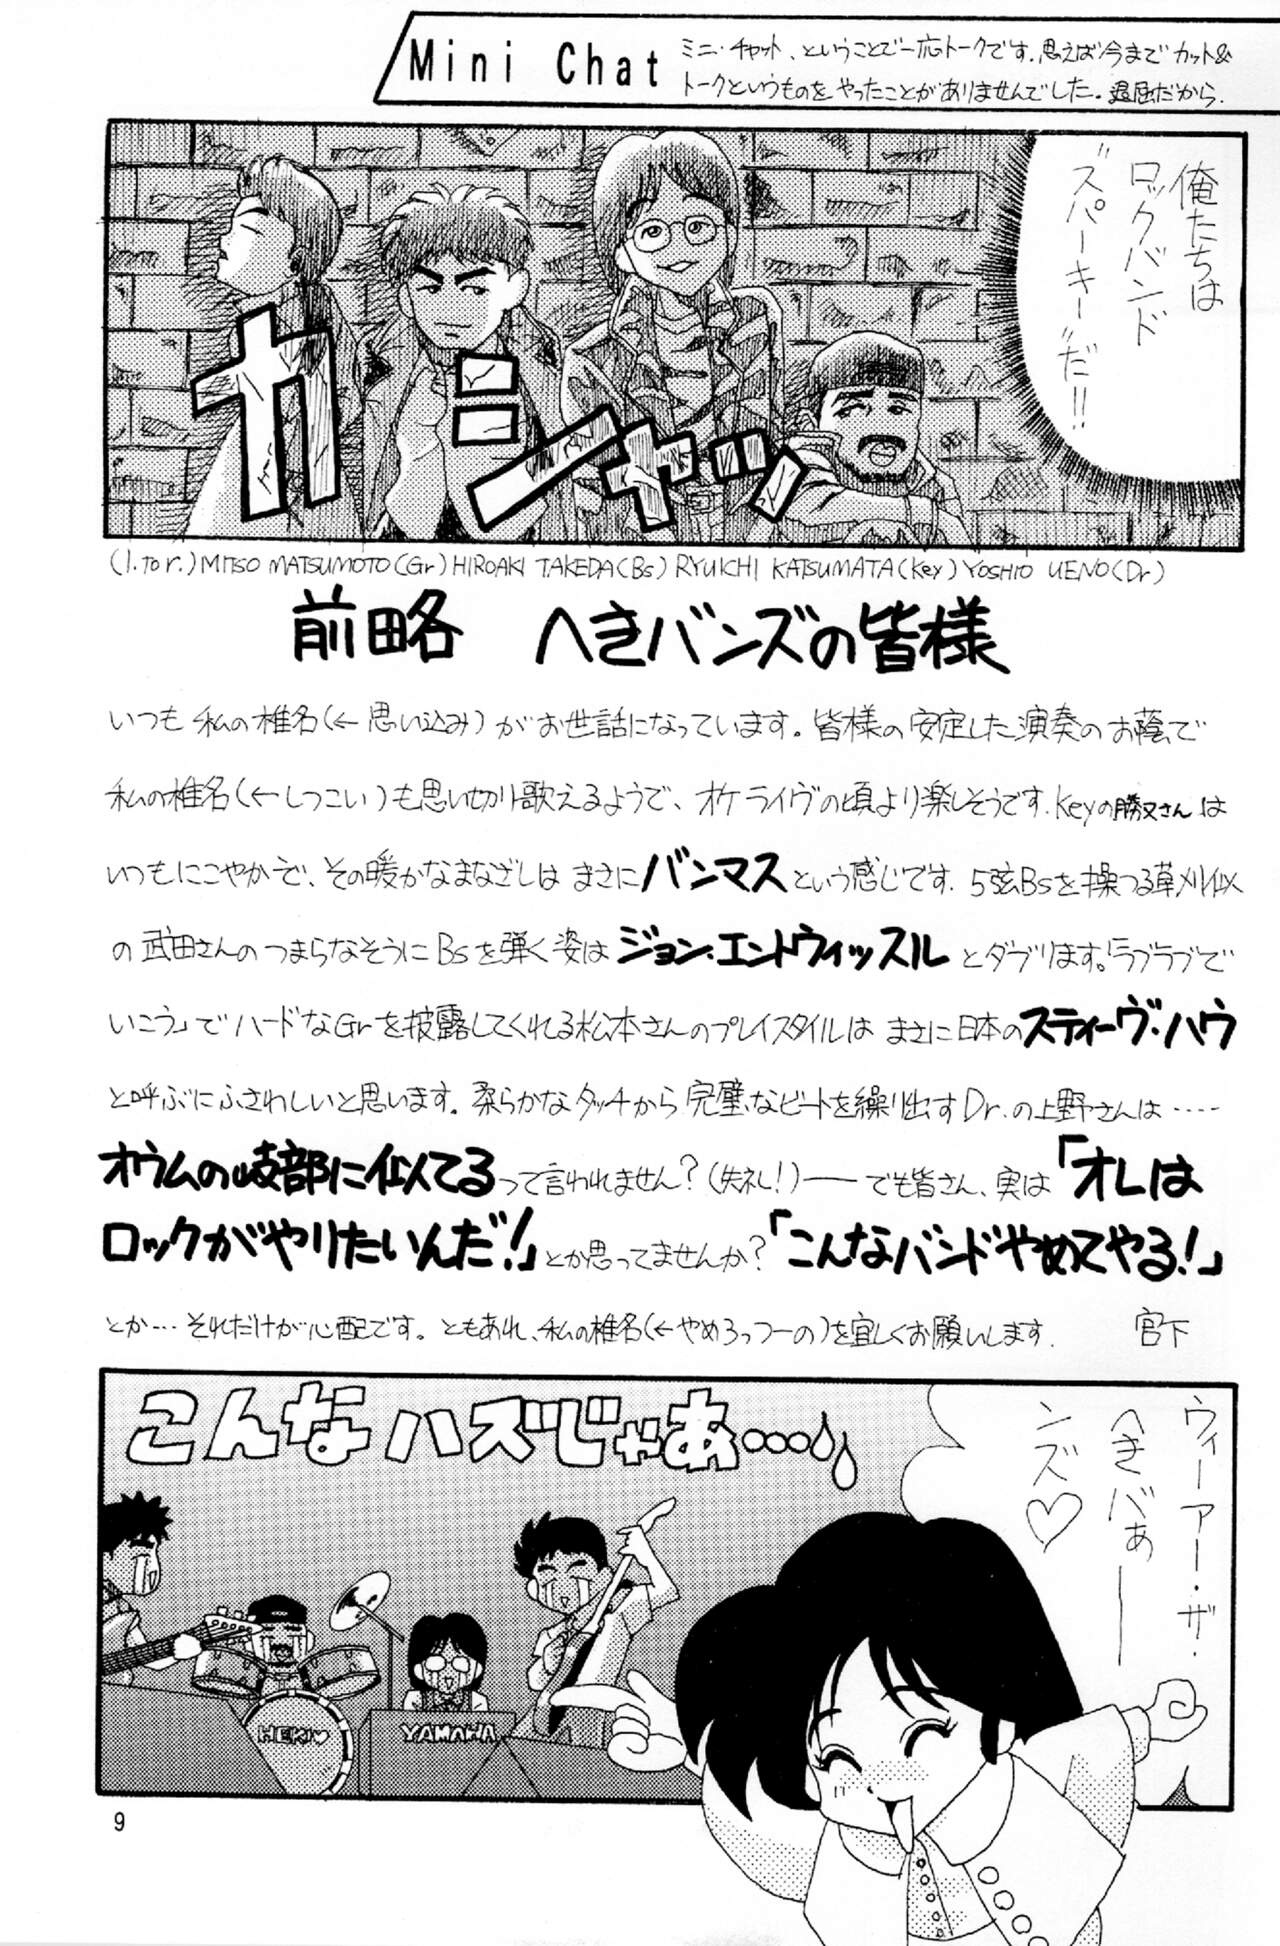 Mini Chat
ミニ・チャット、ということで一応トークです。思えば今までカット&
トークというものをやったことがありませんでした。退屈だから.
俺たちは
ロックバンド
"スパーキー"だ!!
ガシャッ
(l.tor.) MITSO MATSUMOTO(Gr) HIROAKI TAKEDA(Bs) RYUICHI KATSUMATA(Key) YOSHIO UENO(Dr)
前略 へきバンズの皆様
いつも私の椎名(←思い込み)がお世話になっています。皆様の安定した演奏のお蔭で
私の椎名(←しつこい)も思い切り歌えるようで、オケライヴの頃より楽しそうです.Keyの勝又さんは
いつもにこやかで、その暖かなまなざしはまさにバンマスという感じです.5弦Bsを操つる草刈似
の武田さんのつまらなそうにBsを弾く姿はジョン・エントウィッスルとダブります。「ラブラブで
いこう」でハードなGrを披露してくれる松本さんのプレイスタイルはまさに日本のスティーヴ・ハウ
と呼ぶにふさわしいと思います。柔らかなタッチから完璧なビートを繰り出すDr.の上野さんは‥‥
オウムの岐部に似てるって言われません?(失礼!)──でも皆さん、実は「オレは
ロックがやりたいんだ!」とか思ってませんか?「こんなバンドやめてやる!」
とか…それだけが心配です。ともあれ、私の椎名(←やめろっつーの)を宜しくお願いします. 宮下
こんなハズじゃあ…
ウィーアー・ザ・
へきバぁー
ンズ♡
HEKI♥
YAMAHA
9